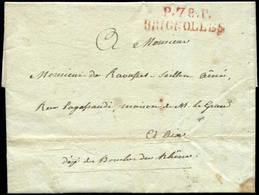 P.78.P.
BRIGNOLLES
A Monsieur
Monsieur de Raousset-Seillon ainé,
Rue Papassaudi, maison de M. le Grand
Et Aix
Dép. des Bouches du Rhône.